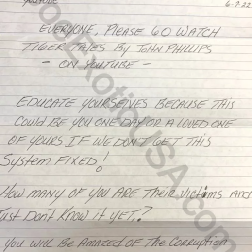 YOUTUBE 6-7-22
EVERYONE, PLEASE GO WATCH
TIGER TALES BY JOHN PHILLIPS
- ON YOUTUBE -
EDUCATE YOURSELVES BECAUSE THIS
COULD BE YOU ONE DAY OR A LOVED ONE
OF YOURS IF WE DON'T GET THIS
SYSTEM FIXED!
HOW MANY OF YOU ARE THEIR VICTIMS AND
JUST DON'T KNOW IT YET?
YOU WILL BE AMAZED OF THE CORRUPTION